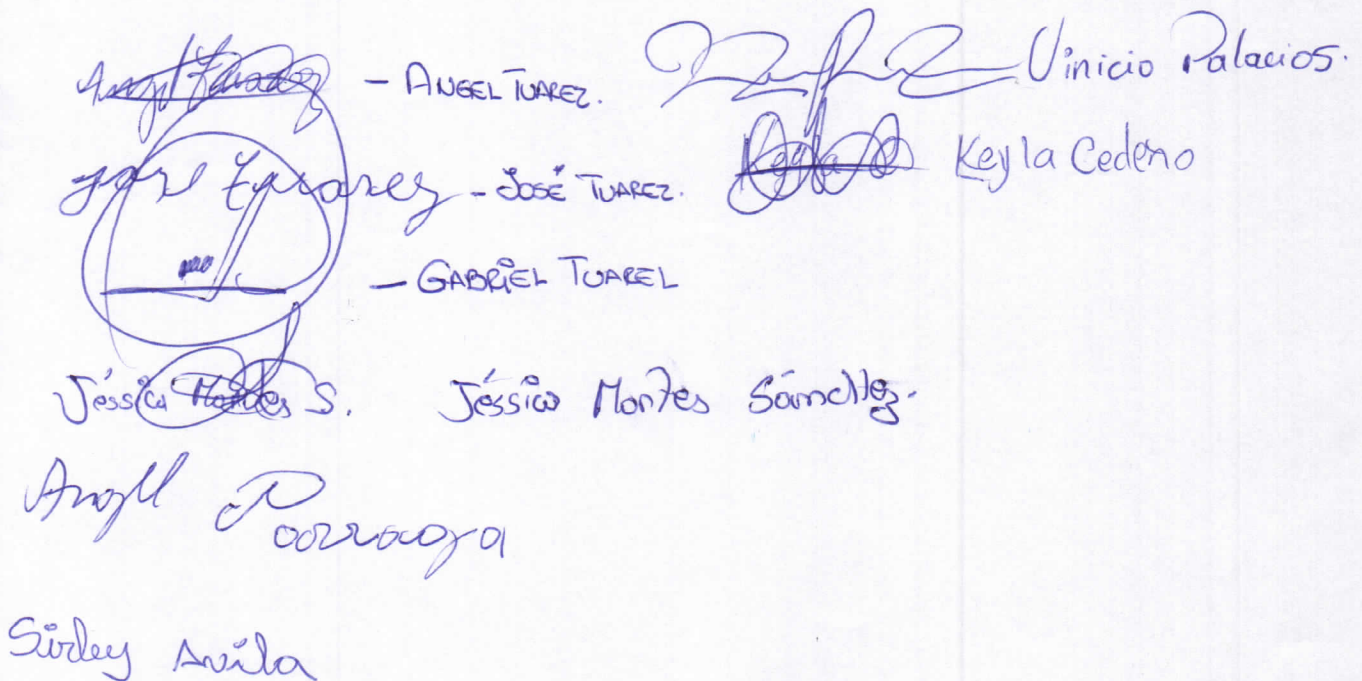 Angel Tuarez - ANGEL TUAREZ.
Vinicio Palacios.
Keyla C Keyla Cedeño
José Tuarez - JOSÉ TUAREZ.
- GABRIEL TUAREL
Jéssica Montes S. Jéssica Montes Sánchez.
Angel Parraga
Sirley Avila